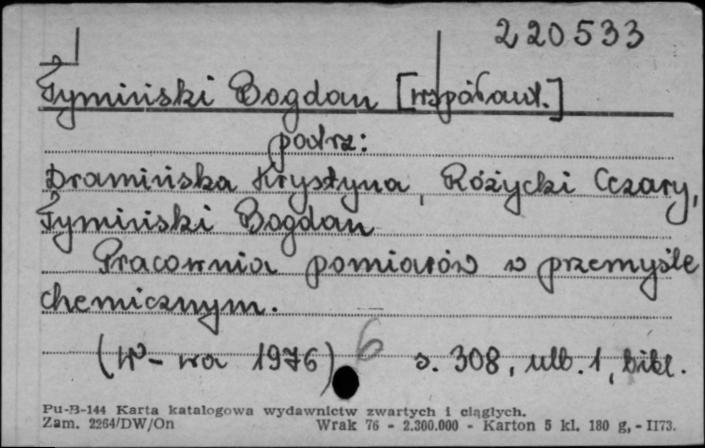 220533
Tymiński Bogdan [współaut.]
patrz:
Dramińska Krystyna, Różycki Cezary,
Tymiński Bogdan
Pracownia pomiarów w przemyśle
chemicznym.
(W-wa 1976) 6 s. 308, ulb. 1, bibl.
Pu-B-144 Karta katalogowa wydawnictw zwartych i ciągłych.
Zam. 2264/DW/On Wrak 76 - 2.300.000 - Karton 5 kl. 180 g, - II73.